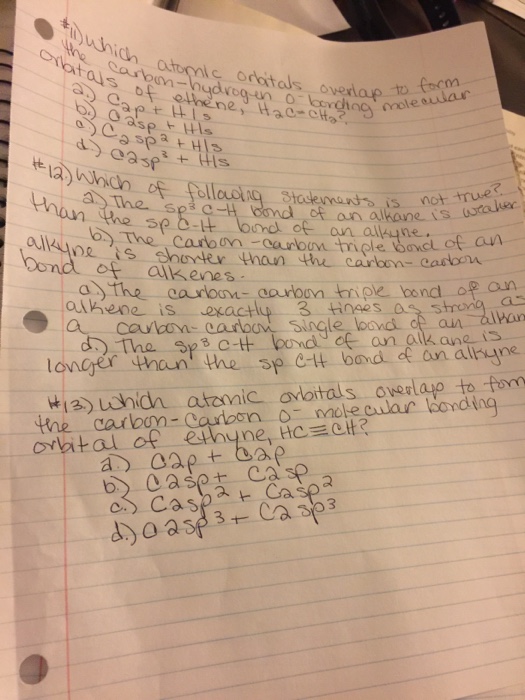 #11) Which atomic orbitals overlap to form
the carbon-hydrogen σ-bonding molecular
orbitals of ethene, H2C=CH2?
a.) C2p + H1s
b.) C2sp + H1s
c.) C2sp2 + H1s
d.) C2sp3 + H1s
#12) Which of following statements is not true?
a.) The sp3 C-H bond of an alkane is weaker
than the sp C-H bond of an alkyne.
b.) The carbon-carbon triple bond of an
alkyne is shorter than the carbon-carbon
bond of alkenes.
a.) The carbon-carbon triple bond of an
alkene is exactly 3 times as strong as
a carbon-carbon single bond of an alkan
d.) The sp3 C-H bond of an alkane is
longer than the sp C-H bond of an alkyne
#13.) Which atomic orbitals overlap to form
the carbon-carbon σ- molecular bonding
orbital of ethyne, HC≡CH?
a.) C2p + C2p
b.) C2sp + C2sp
c.) C2sp2 + C2sp2
d.) C2sp3 + C2sp3